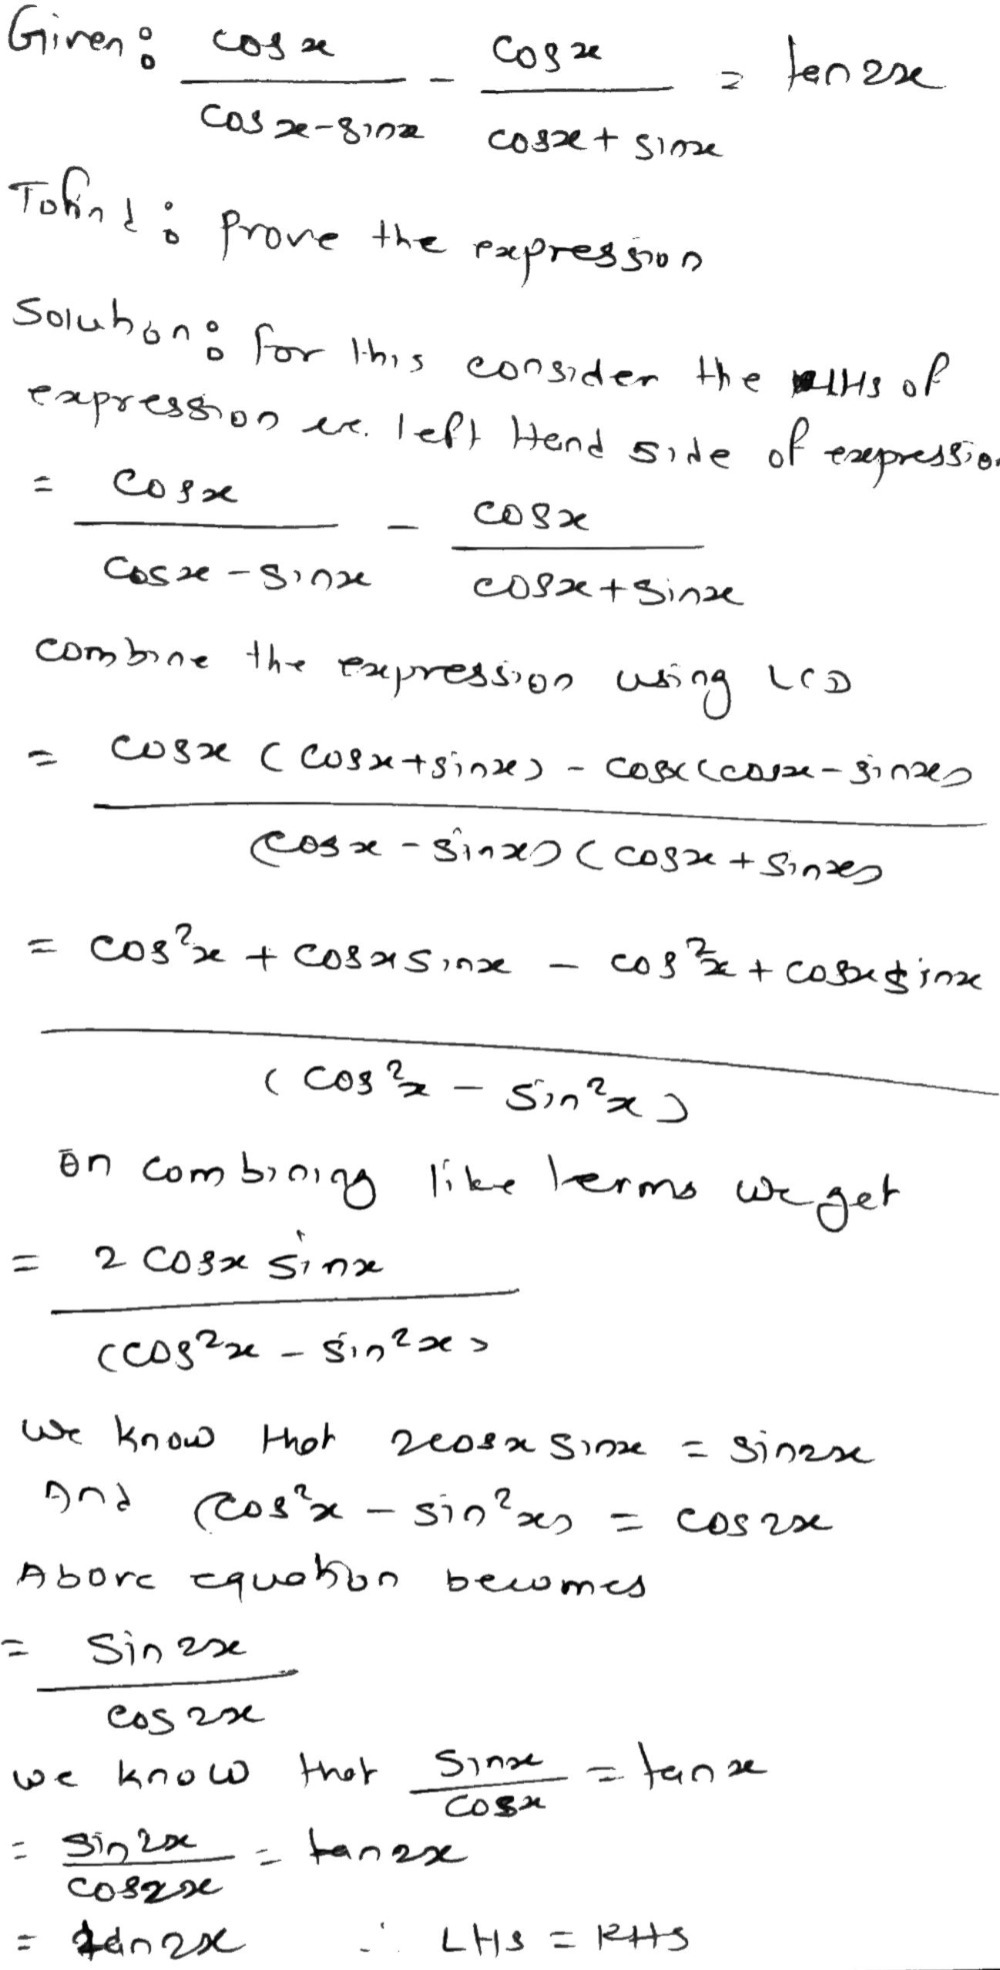 Given: cosx / cosx-sinx - cosx / cosx+sinx = tan2x
Tofind: prove the expression
Solution: for this consider the LHS of
expression i.e. left Hand side of expression
= cosx / cosx-sinx - cosx / cosx+sinx
combine the expression using LCD
= cosx (cosx+sinx) - cosx(cosx-sinx) / (cosx-sinx)(cosx+sinx)
= cos²x + cosxsinx - cos²x + cosxsinx / (cos²x - sin²x)
on combining like terms we get
= 2cosx sinx / (cos²x - sin²x)
we know that 2cosx sinx = sin2x
And (cos²x - sin²x) = cos2x
Above equation becomes
= sin2x / cos2x
we know that sinx / cosx = tanx
= sin2x / cos2x = tan2x
= tan2x ∴ LHS = RHS